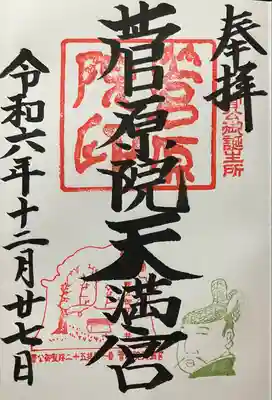 奉拝
菅公御誕生所
菅原院天満宮
菅原院印
令和六年十二月廿七日